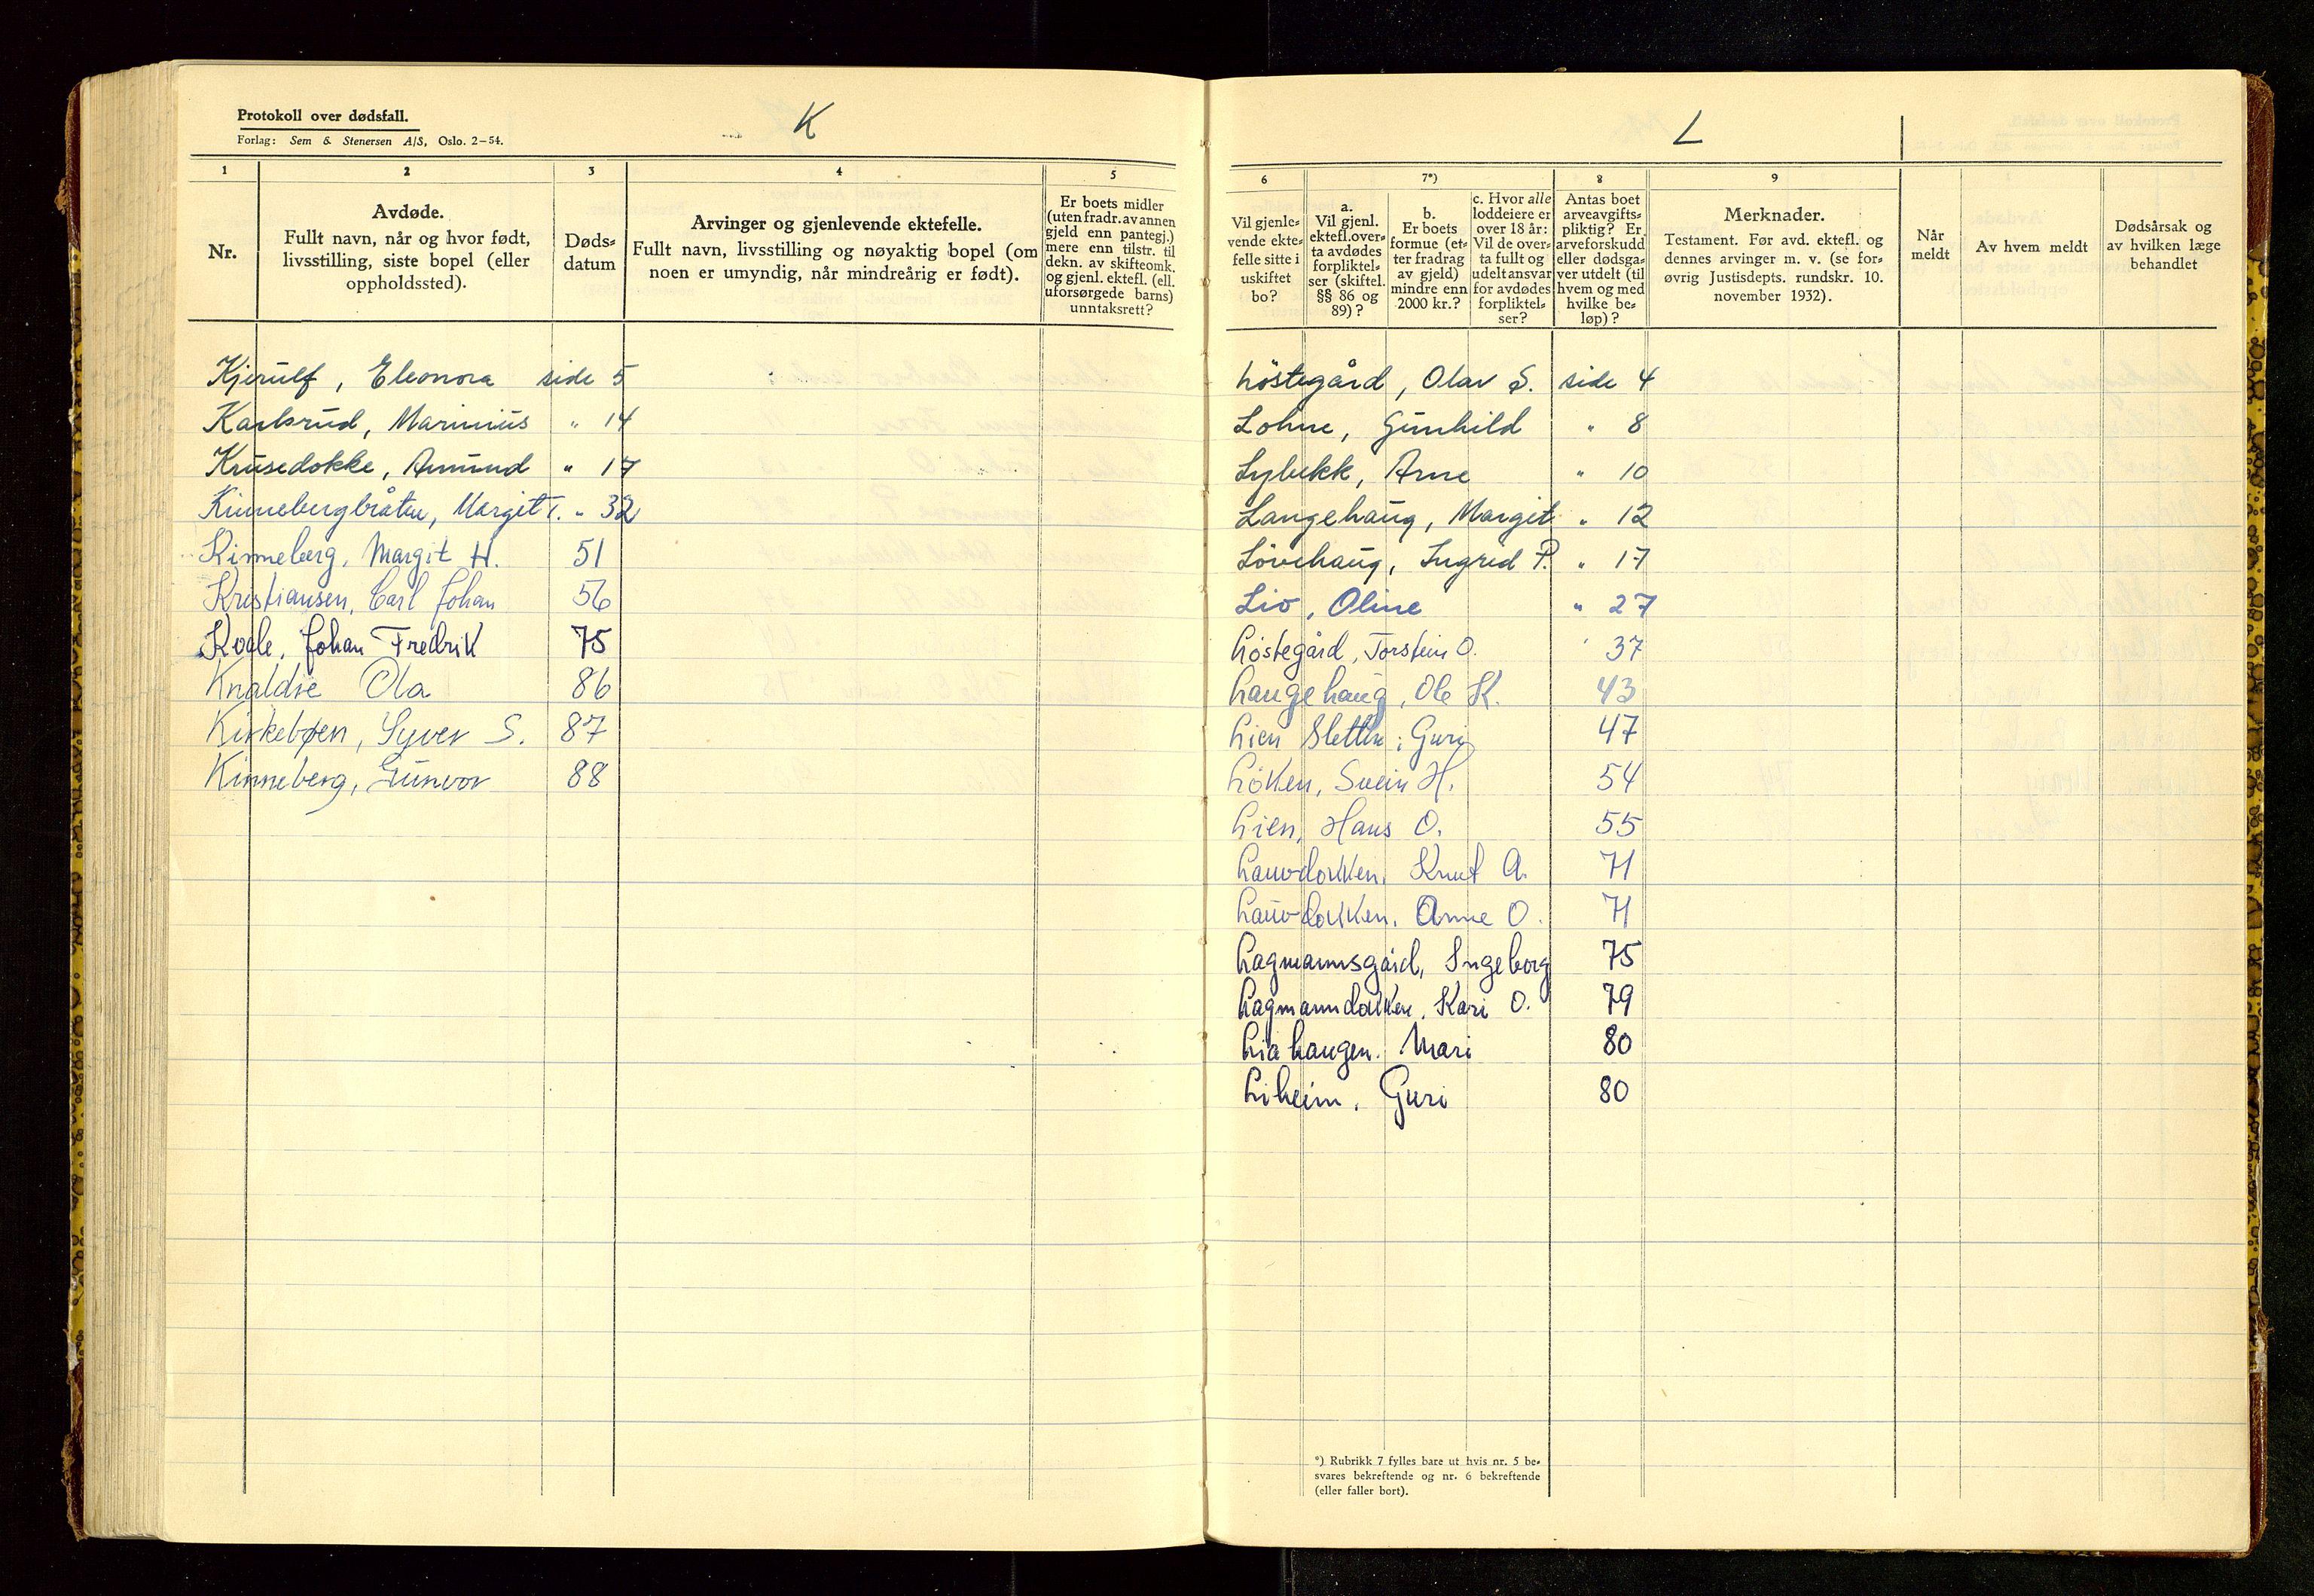 Protokoll over dødsfall.
Forlag: Sem & Stenersen A/S, Oslo. 2–54.
K
1
2
3
4
5
Nr.
Avdøde.
Fullt navn, når og hvor født,
livsstilling, siste bopel (eller
oppholdssted).
Døds-
datum
Arvinger og gjenlevende ektefelle.
Fullt navn, livsstilling og nøyaktig bopel (om
noen er umyndig, når mindreårig er født).
Er boets midler
(uten fradr. av annen
gjeld enn pantegj.)
mere enn tilstr. til
dekn. av skifteomk.
og gjenl. ektefl. (ell.
uforsørgede barns)
unntaksrett?
Kjerulf, Eleonora side 5
Karlsrud, Marinius " 14
Krusedokke, Amund " 17
Kinnebergbråten, Margit T. " 32
Kinneberg, Margit H. 51
Kristiansen, Carl Johan 56
Kvale, Johan Fredrik 75
Knaldre Ola 86
Kirkebøen, Syver S. 87
Kinneberg, Gunvor 88
L
6
7*)
8
9
Vil gjenle-
vende ekte-
felle sitte i
uskiftet
bo?
a.
Vil gjenl.
ektefl. over-
ta avdødes
forpliktel-
ser (skiftel.
§§ 86 og
89)?
b.
Er boets
formue (et-
ter fradrag
av gjeld)
mindre enn
2000 kr.?
c. Hvor alle
loddeiere er
over 18 år:
Vil de over-
ta fullt og
udelt ansvar
for avdødes
forpliktel-
ser?
Antas boet
arveavgifts-
pliktig? Er
arveforskudd
eller dødsga-
ver utdelt (til
hvem og med
hvilke be-
løp)?
Merknader.
Testament. Før avd. ektefl. og
dennes arvinger m. v. (se for-
øvrig Justisdepts. rundskr. 10.
november 1932).
Når
meldt
Av hvem meldt
Dødsårsak og
av hvilken læge
behandlet
Löstegård, Olav S. side 4
Lohne, Gunhild " 8
Lybekk, Arne " 10
Langehaug, Margit " 12
Lövehaug, Ingrid P. " 17
Lio, Oline " 27
Löstegård, Torstein O. " 37
Langehaug, Ole K. 43
Lien Sletten, Guri 47
Löken, Svein H. 54
Lien, Hans O. 55
Lauvdokken, Knut A. 71
Lauvdokken, Anne O. 71
Lagmannsgård, Ingeborg 75
Lagmanndokken, Kari O. 79
Liahaugen, Mari 80
Liheim, Guri 80
*) Rubrikk 7 fylles bare ut hvis nr. 5 be-
svares bekreftende og nr. 6 bekreftende
(eller faller bort).